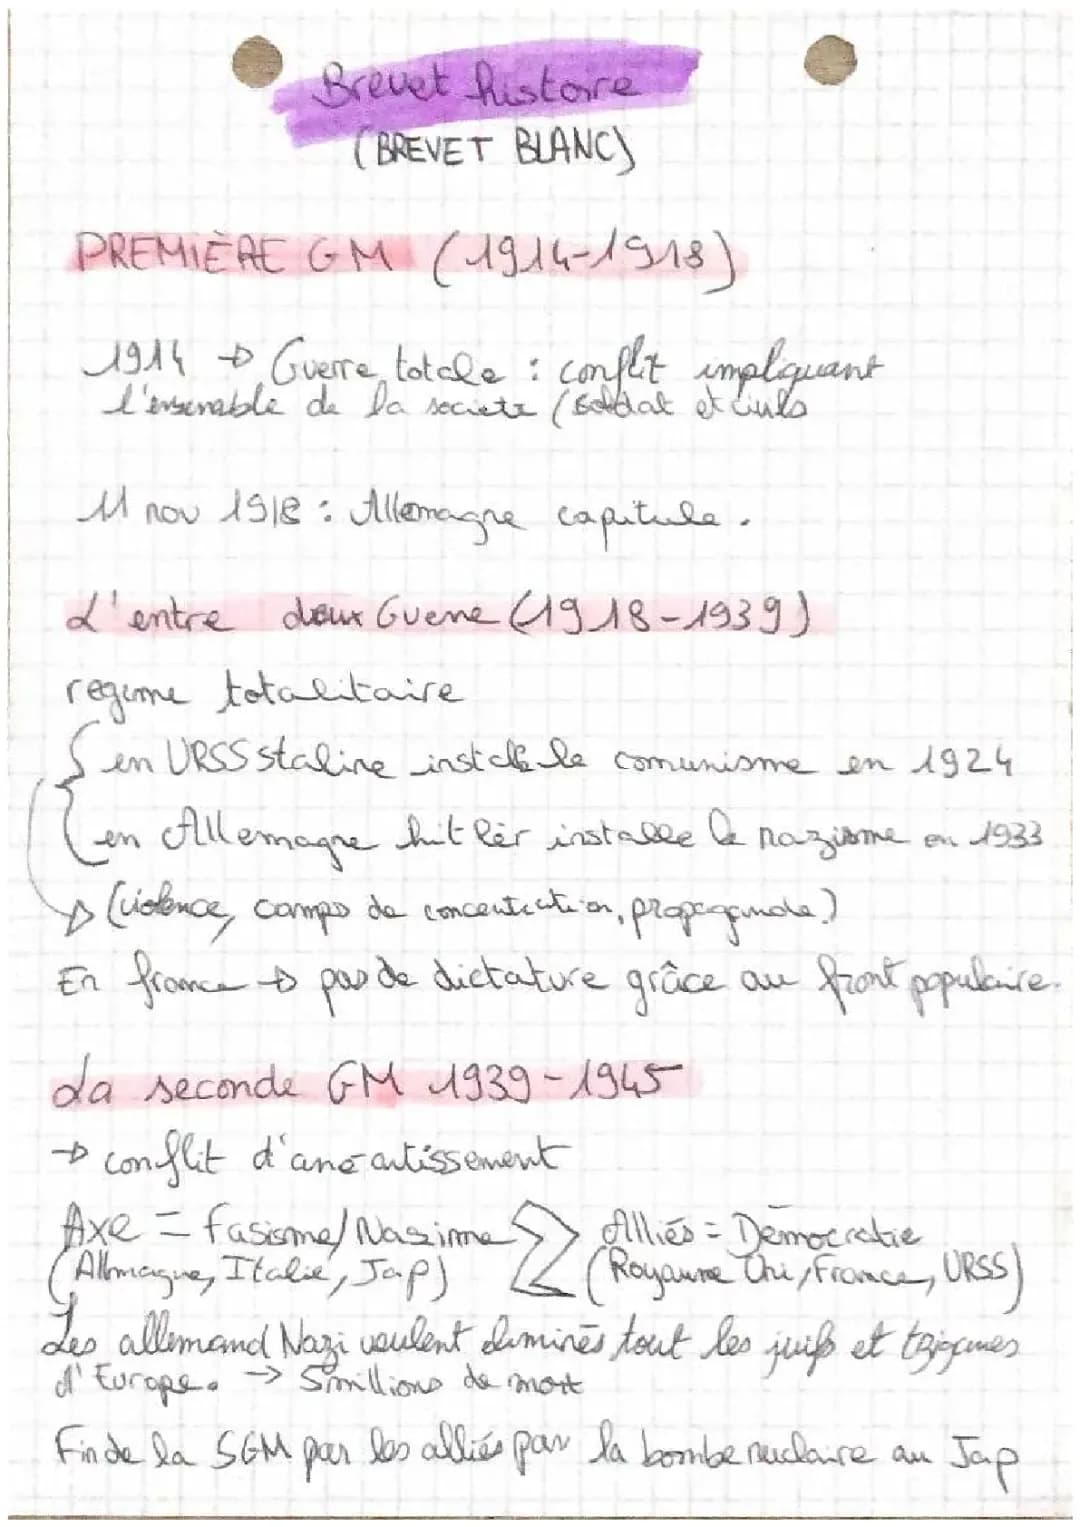 Brevet histoire
(BREVET BLANC)
PREMIÈRE GM (1914-1918)
1914 → Guerre totale : conflit impliquant
l'ensemble de la societe (soldat et civils
11 nov 1918 : Allemagne capitule.
L'entre deux Guerre (1918-1939)
regime totalitaire
en URSS staline installe le comunisme en 1924
en Allemagne hitler installe le nazisme en 1933
→ (violence, camps de concentration, propagande)
En france → pas de dictature grâce au front populaire.
La seconde GM 1939-1945
→ conflit d'anéantissement
Axe = fasisme/Nasime Alliés = Démocratie
(Allmagne, Italie, Jap) (Royaume Uni, France, URSS)
Les allemand Nazi veulent éliminés tout les juifs et tziganes
d'Europe. → 5millions de mort
Fin de la SGM par les alliés par la bombe nuclaire au Jap